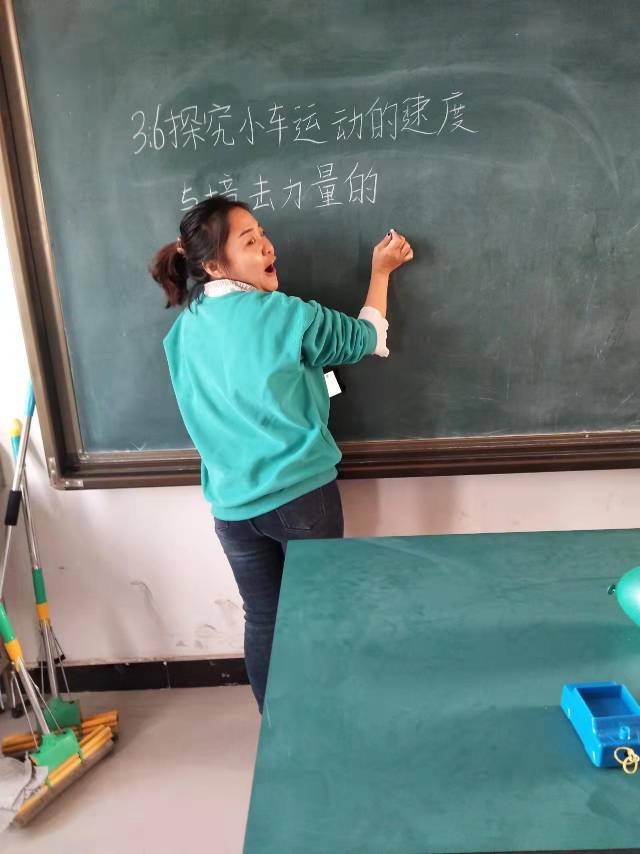 3.6探究小车运动的速度
与撞击力量的